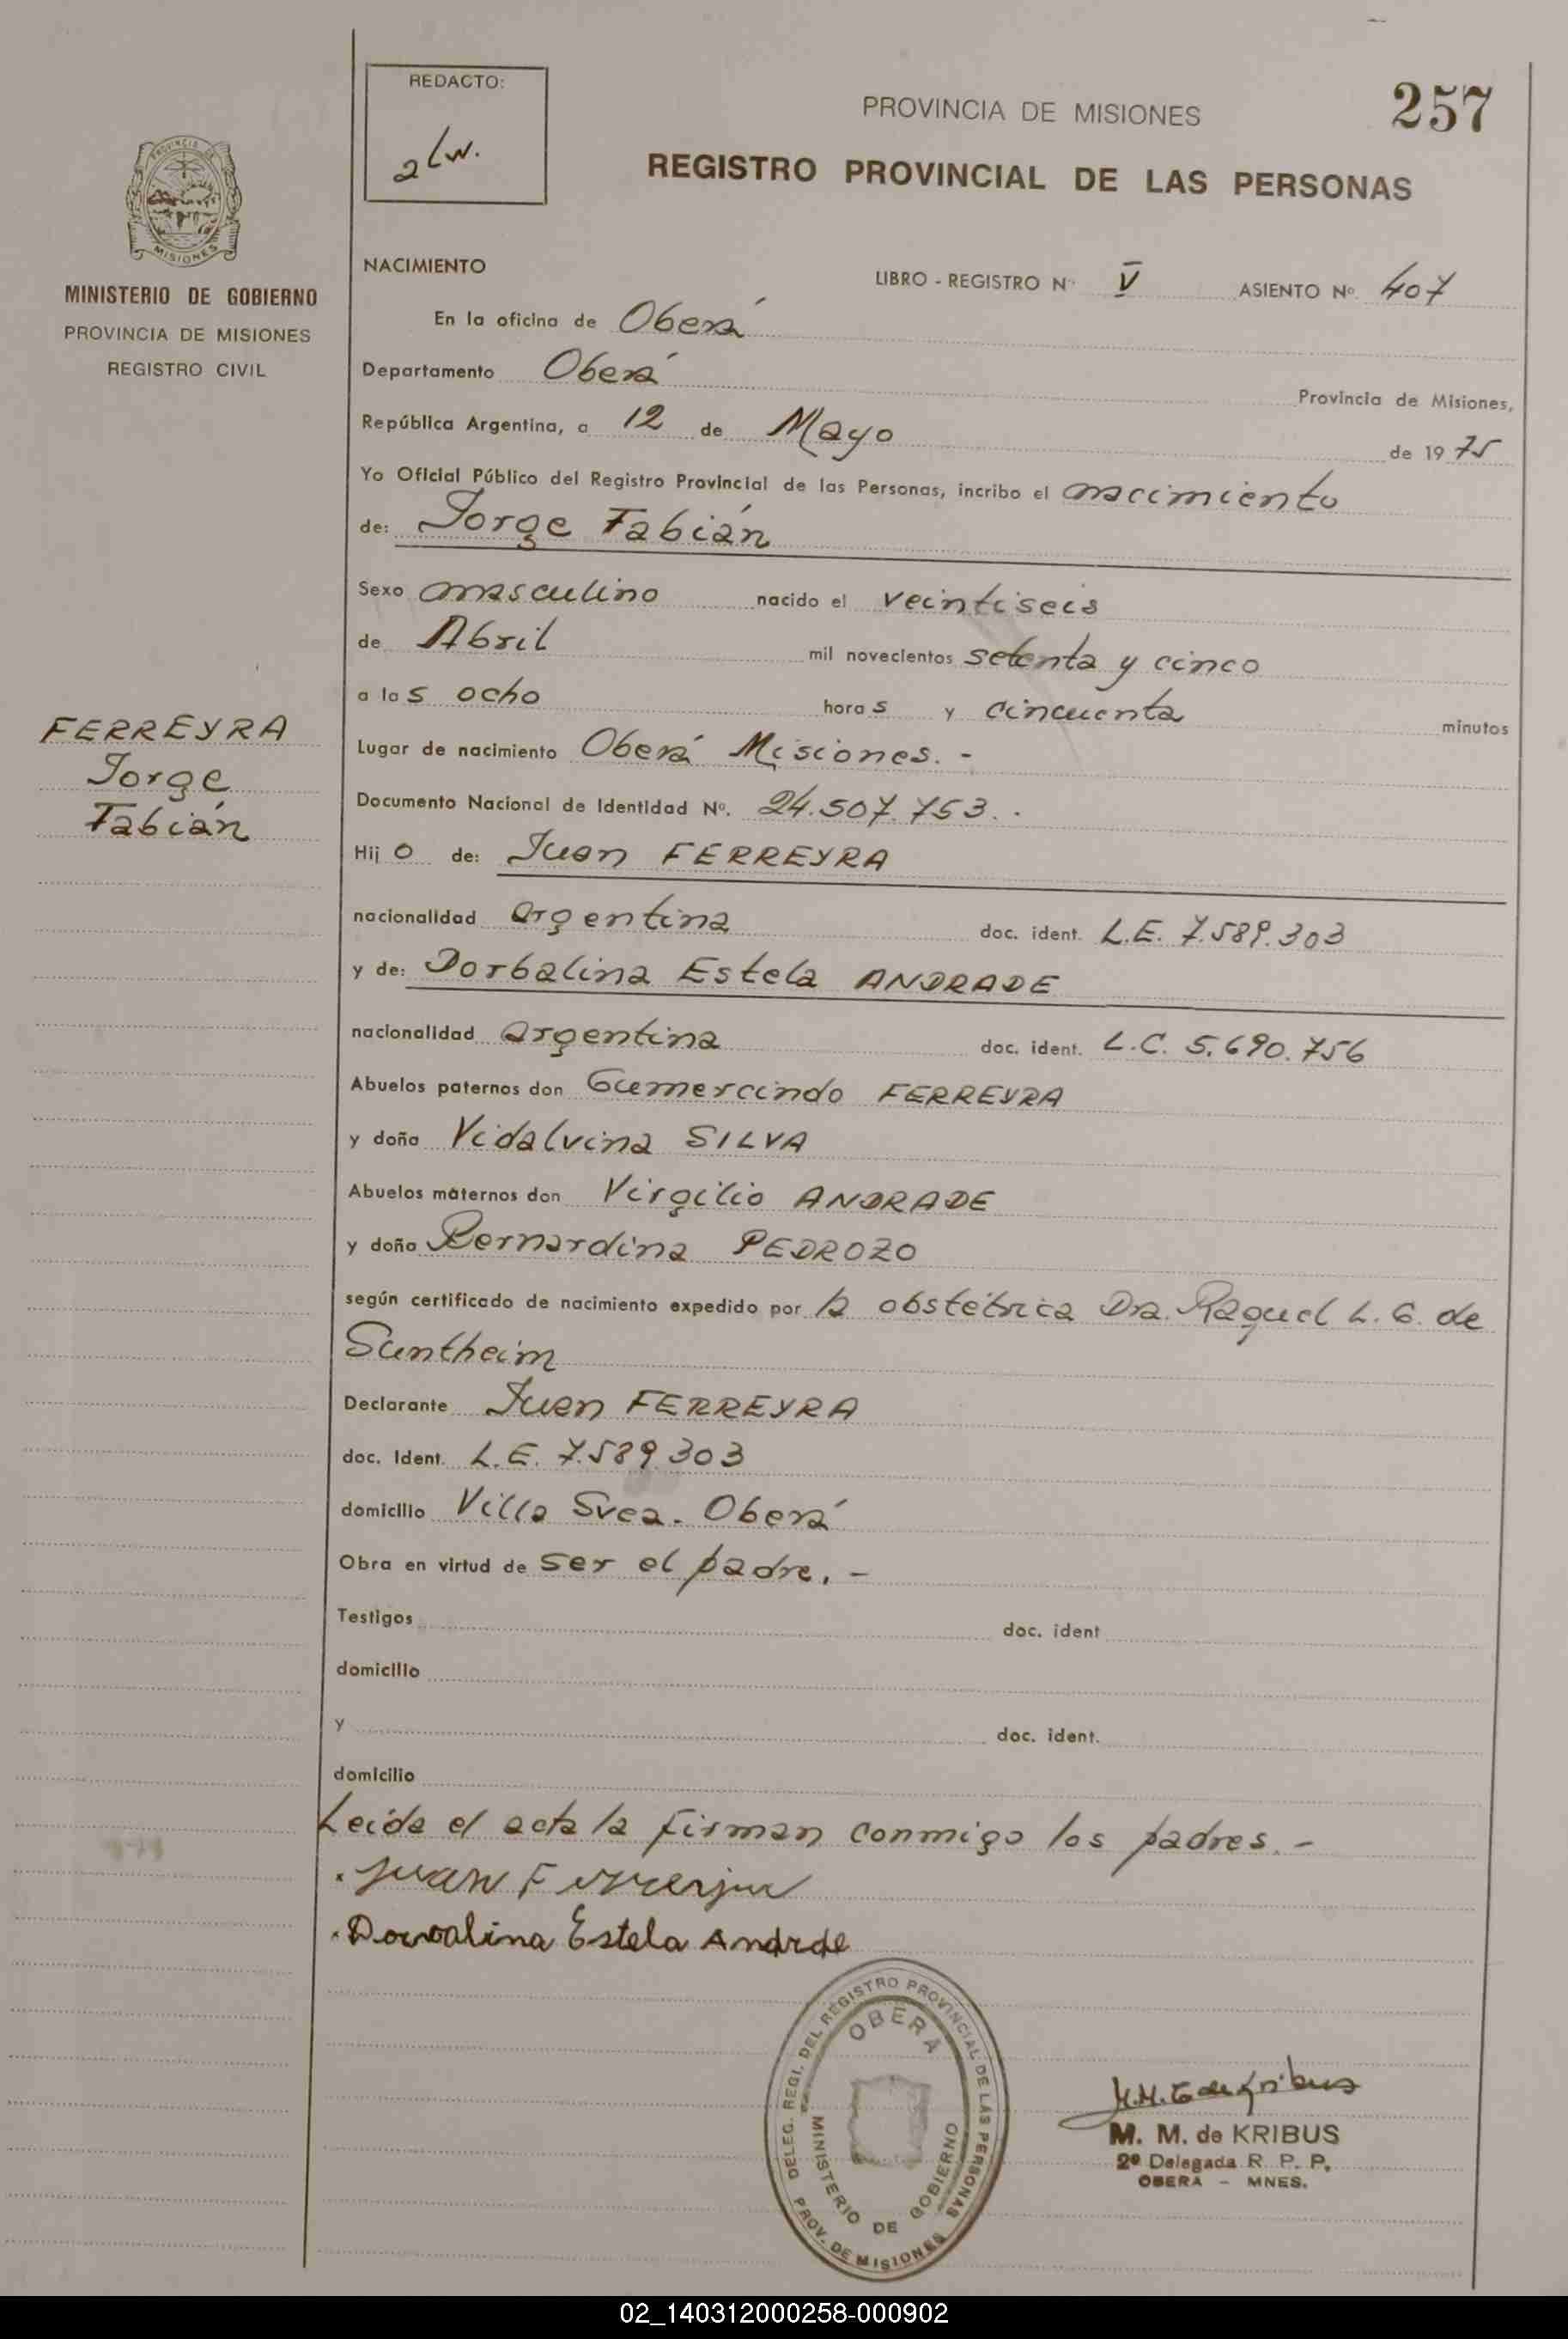 REDACTO:
alw.
PROVINCIA DE MISIONES
257
REGISTRO PROVINCIAL DE LAS PERSONAS
PROVINCIA DE
MISIONES
MINISTERIO DE GOBIERNO
PROVINCIA DE MISIONES
REGISTRO CIVIL
NACIMIENTO LIBRO - REGISTRO Nº V ASIENTO Nº. 407
En la oficina de Oberá
Departamento Oberá Provincia de Misiones,
República Argentina, a 12 de Mayo de 1975
Yo Oficial Público del Registro Provincial de las Personas, incribo el nacimiento
de: Jorge Fabián
Sexo masculino nacido el veintiseis
de Abril mil novecientos setenta y cinco
a las ocho horas y cincuenta minutos
FERREYRA
Jorge
Fabián
Lugar de nacimiento Oberá Misiones. -
Documento Nacional de Identidad Nº. 24.507.753. .
Hijo de: Juan FERREYRA
nacionalidad argentina doc. ident. L.E. 7.589.303
y de: Dorbalina Estela ANDRADE
nacionalidad argentina doc. ident. L.C. 5.690.756
Abuelos paternos don Gumercindo FERREYRA
y doña Vidalvina SILVA
Abuelos maternos don Virgilio ANDRADE
y doña Bernardina PEDROZO
según certificado de nacimiento expedido por la obstétrica Dra. Raquel L. G. de
Suntheim
Declarante Juan FERREYRA
doc. Ident. L.E. 7.589.303
domicilio Villa Svea. Oberá
Obra en virtud de ser el padre. -
Testigos doc. ident
domicilio
y doc. ident.
domicilio
Leída el acta la firman conmigo los padres. -
Juan Ferreyra
Dorvalina Estela Andrde
DELEG. REGI. DEL REGISTRO PROVINCIAL DE LAS PERSONAS
OBERA
MINISTERIO DE GOBIERNO
PROV. DE MISIONES
M. M. de KRIBUS
2º Delegada R. P. P.
OBERA - MNES.
02_140312000258-000902